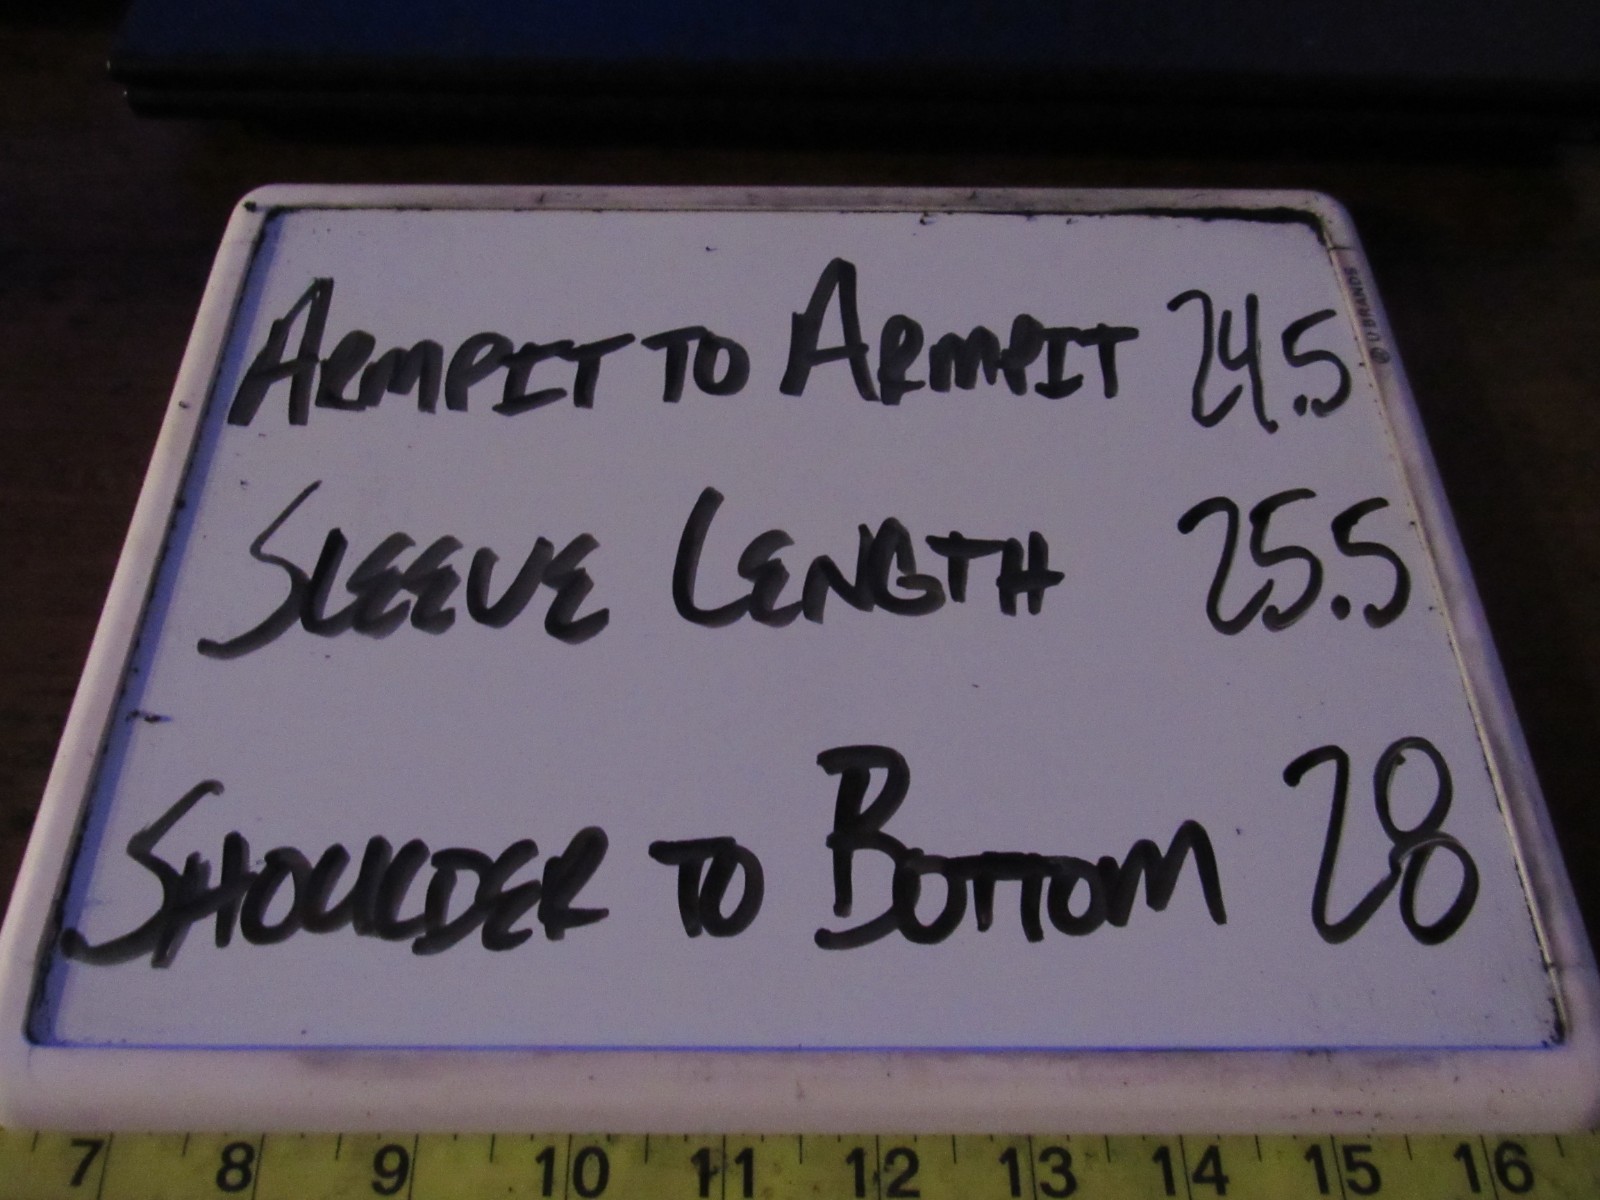 ARMPIT TO ARMPIT 24.5
SLEEVE LENGTH 25.5
SHOULDER TO BOTTOM 28
© U BRANDS
7 8 9 10 11 12 13 14 15 16